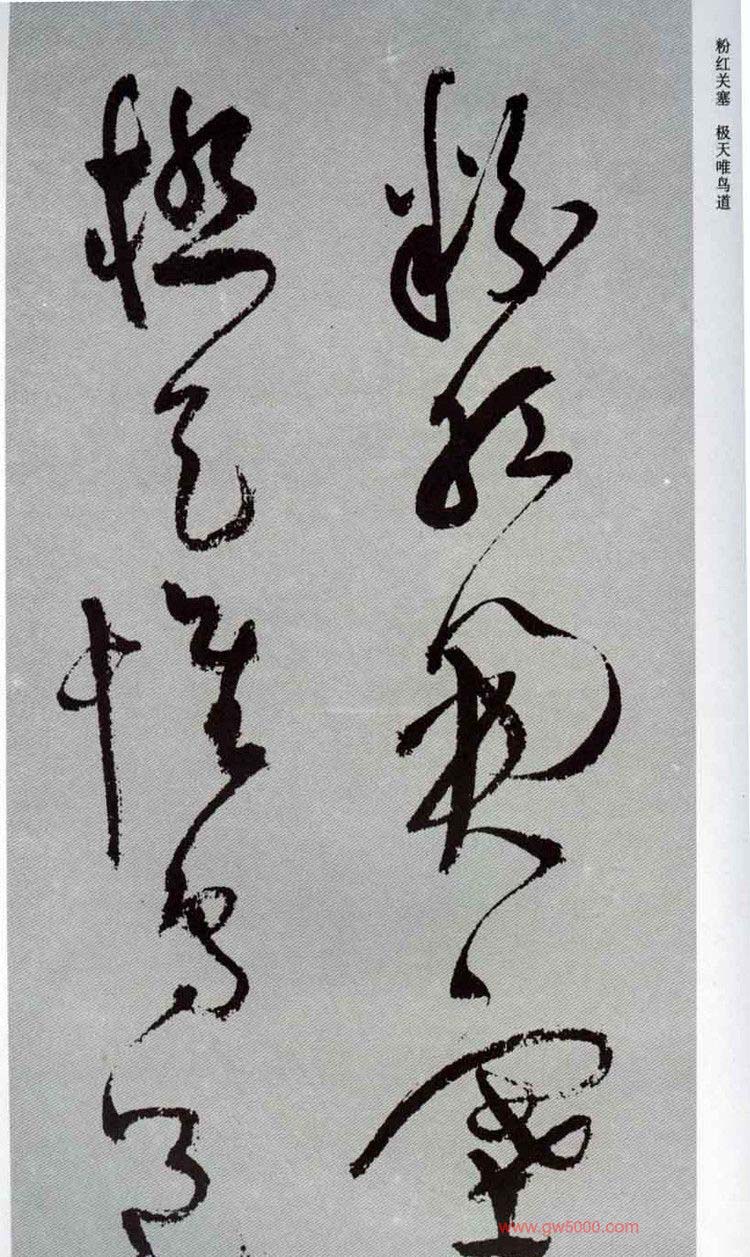 粉红关塞 极天唯鸟道
粉红關塞
極天惟鳥道
www.gw5000.com